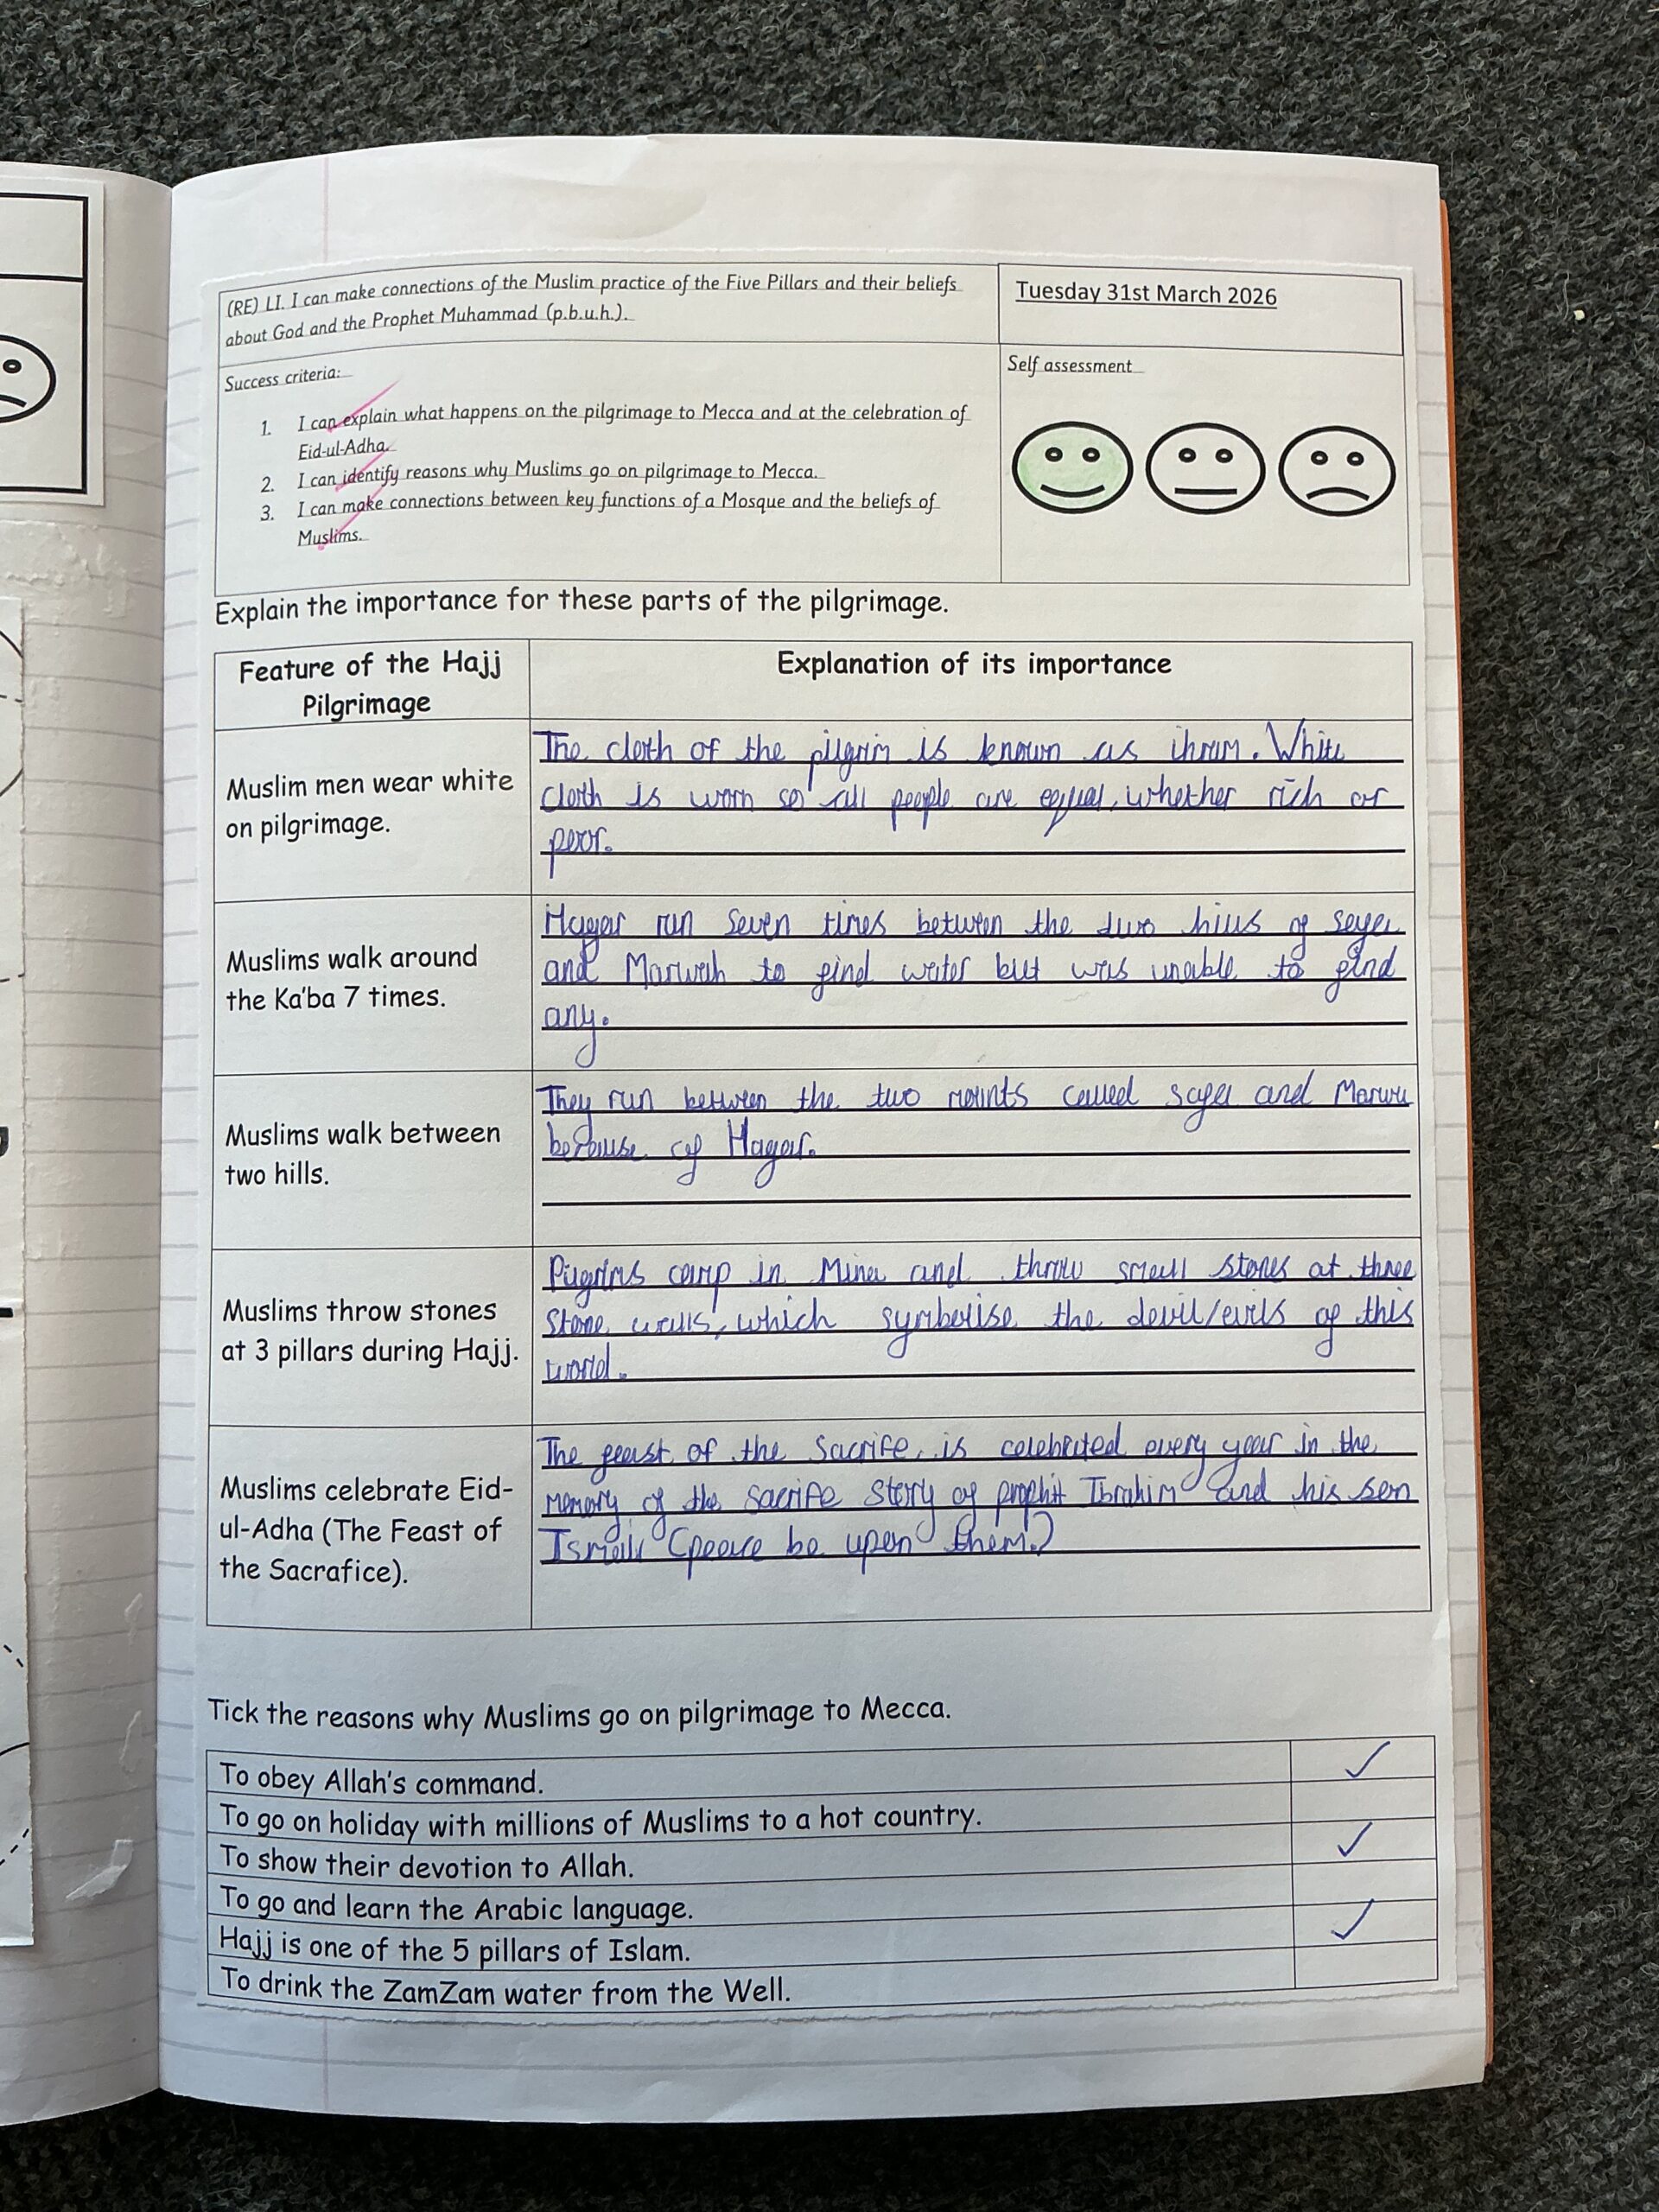 (RE) LI. I can make connections of the Muslim practice of the Five Pillars and their beliefs
about God and the Prophet Muhammad (p.b.u.h.).
Tuesday 31st March 2026
Success criteria:
1. I can explain what happens on the pilgrimage to Mecca and at the celebration of
Eid-ul-Adha.
2. I can identify reasons why Muslims go on pilgrimage to Mecca.
3. I can make connections between key functions of a Mosque and the beliefs of
Muslims.
Self assessment
Explain the importance for these parts of the pilgrimage.
Feature of the Hajj
Pilgrimage
Explanation of its importance
Muslim men wear white
on pilgrimage.
The cloth of the pilgrim is known as ihram. White
cloth is worn so all people are equal, whether rich or
poor.
Muslims walk around
the Ka'ba 7 times.
Hagar run seven times between the two hills of
and Marwah to find water but was unable to find
any.
Muslims walk between
two hills.
They run between the two mounts called safa and Marwa
because of Hagar.
Muslims throw stones
at 3 pillars during Hajj.
Pilgrims camp in Mina and throw small stones at three
stone walls, which symbolise the devil/evils of this
world.
Muslims celebrate Eid-
ul-Adha (The Feast of
the Sacrafice).
The feast of the Sacrife, is celebrated every year in the
memory of the sacrife story of prophit Ibrahim and his son
Ismail (peace be upon them.)
Tick the reasons why Muslims go on pilgrimage to Mecca.
To obey Allah's command. ✓
To go on holiday with millions of Muslims to a hot country.
To show their devotion to Allah. ✓
To go and learn the Arabic language.
Hajj is one of the 5 pillars of Islam. ✓
To drink the ZamZam water from the Well.